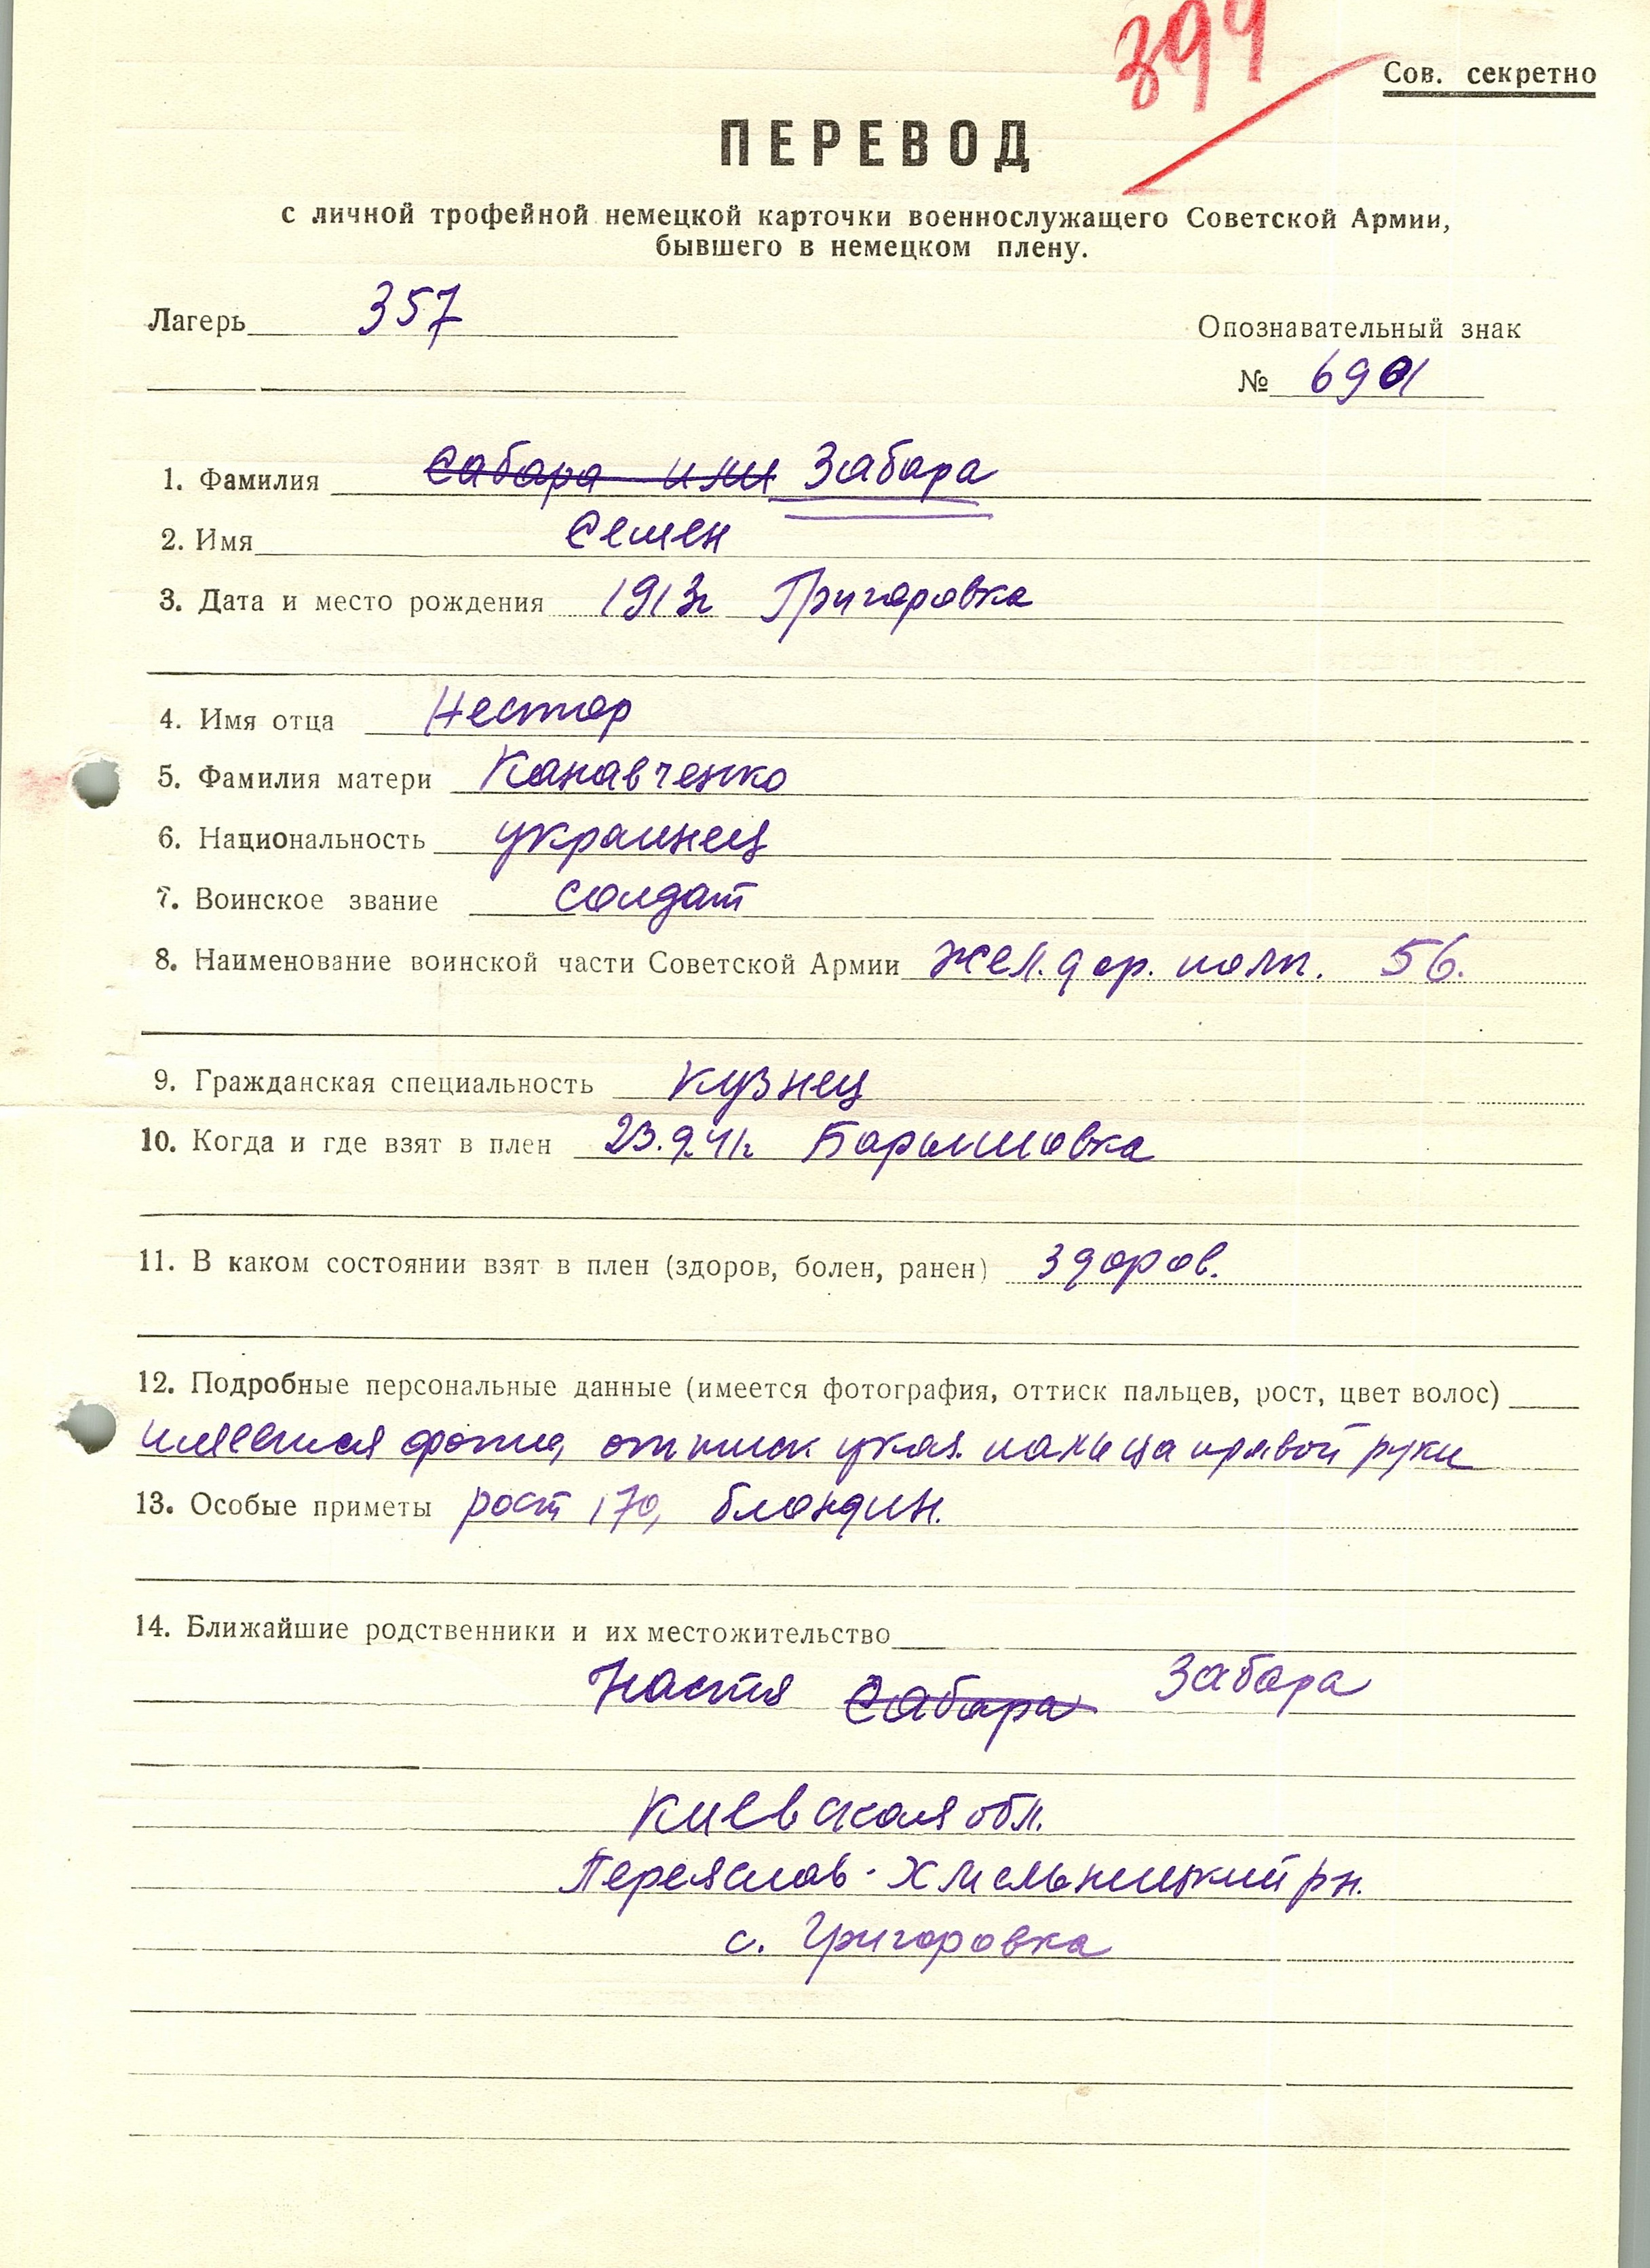 399
Сов. секретно
ПЕРЕВОД
с личной трофейной немецкой карточки военнослужащего Советской Армии,
бывшего в немецком плену.
Лагерь 357
Опознавательный знак
№ 6901
1. Фамилия Сабара или Забара
2. Имя Семен
3. Дата и место рождения 1913г Григоровка
4. Имя отца Нестор
5. Фамилия матери Канавченко
6. Национальность украинец
7. Воинское звание солдат
8. Наименование воинской части Советской Армии Жел.дор. полк. 56.
9. Гражданская специальность Кузнец
10. Когда и где взят в плен 23.9.41г Барышовка
11. В каком состоянии взят в плен (здоров, болен, ранен) здоров.
12. Подробные персональные данные (имеется фотография, оттиск пальцев, рост, цвет волос)
имеется фото, оттиск указ. пальца правой руки
13. Особые приметы рост 170, блондин.
14. Ближайшие родственники и их местожительство
Настя Сабара Забара
Киевская обл.
Переяслав-Хмельницкий рн.
с. Григоровка